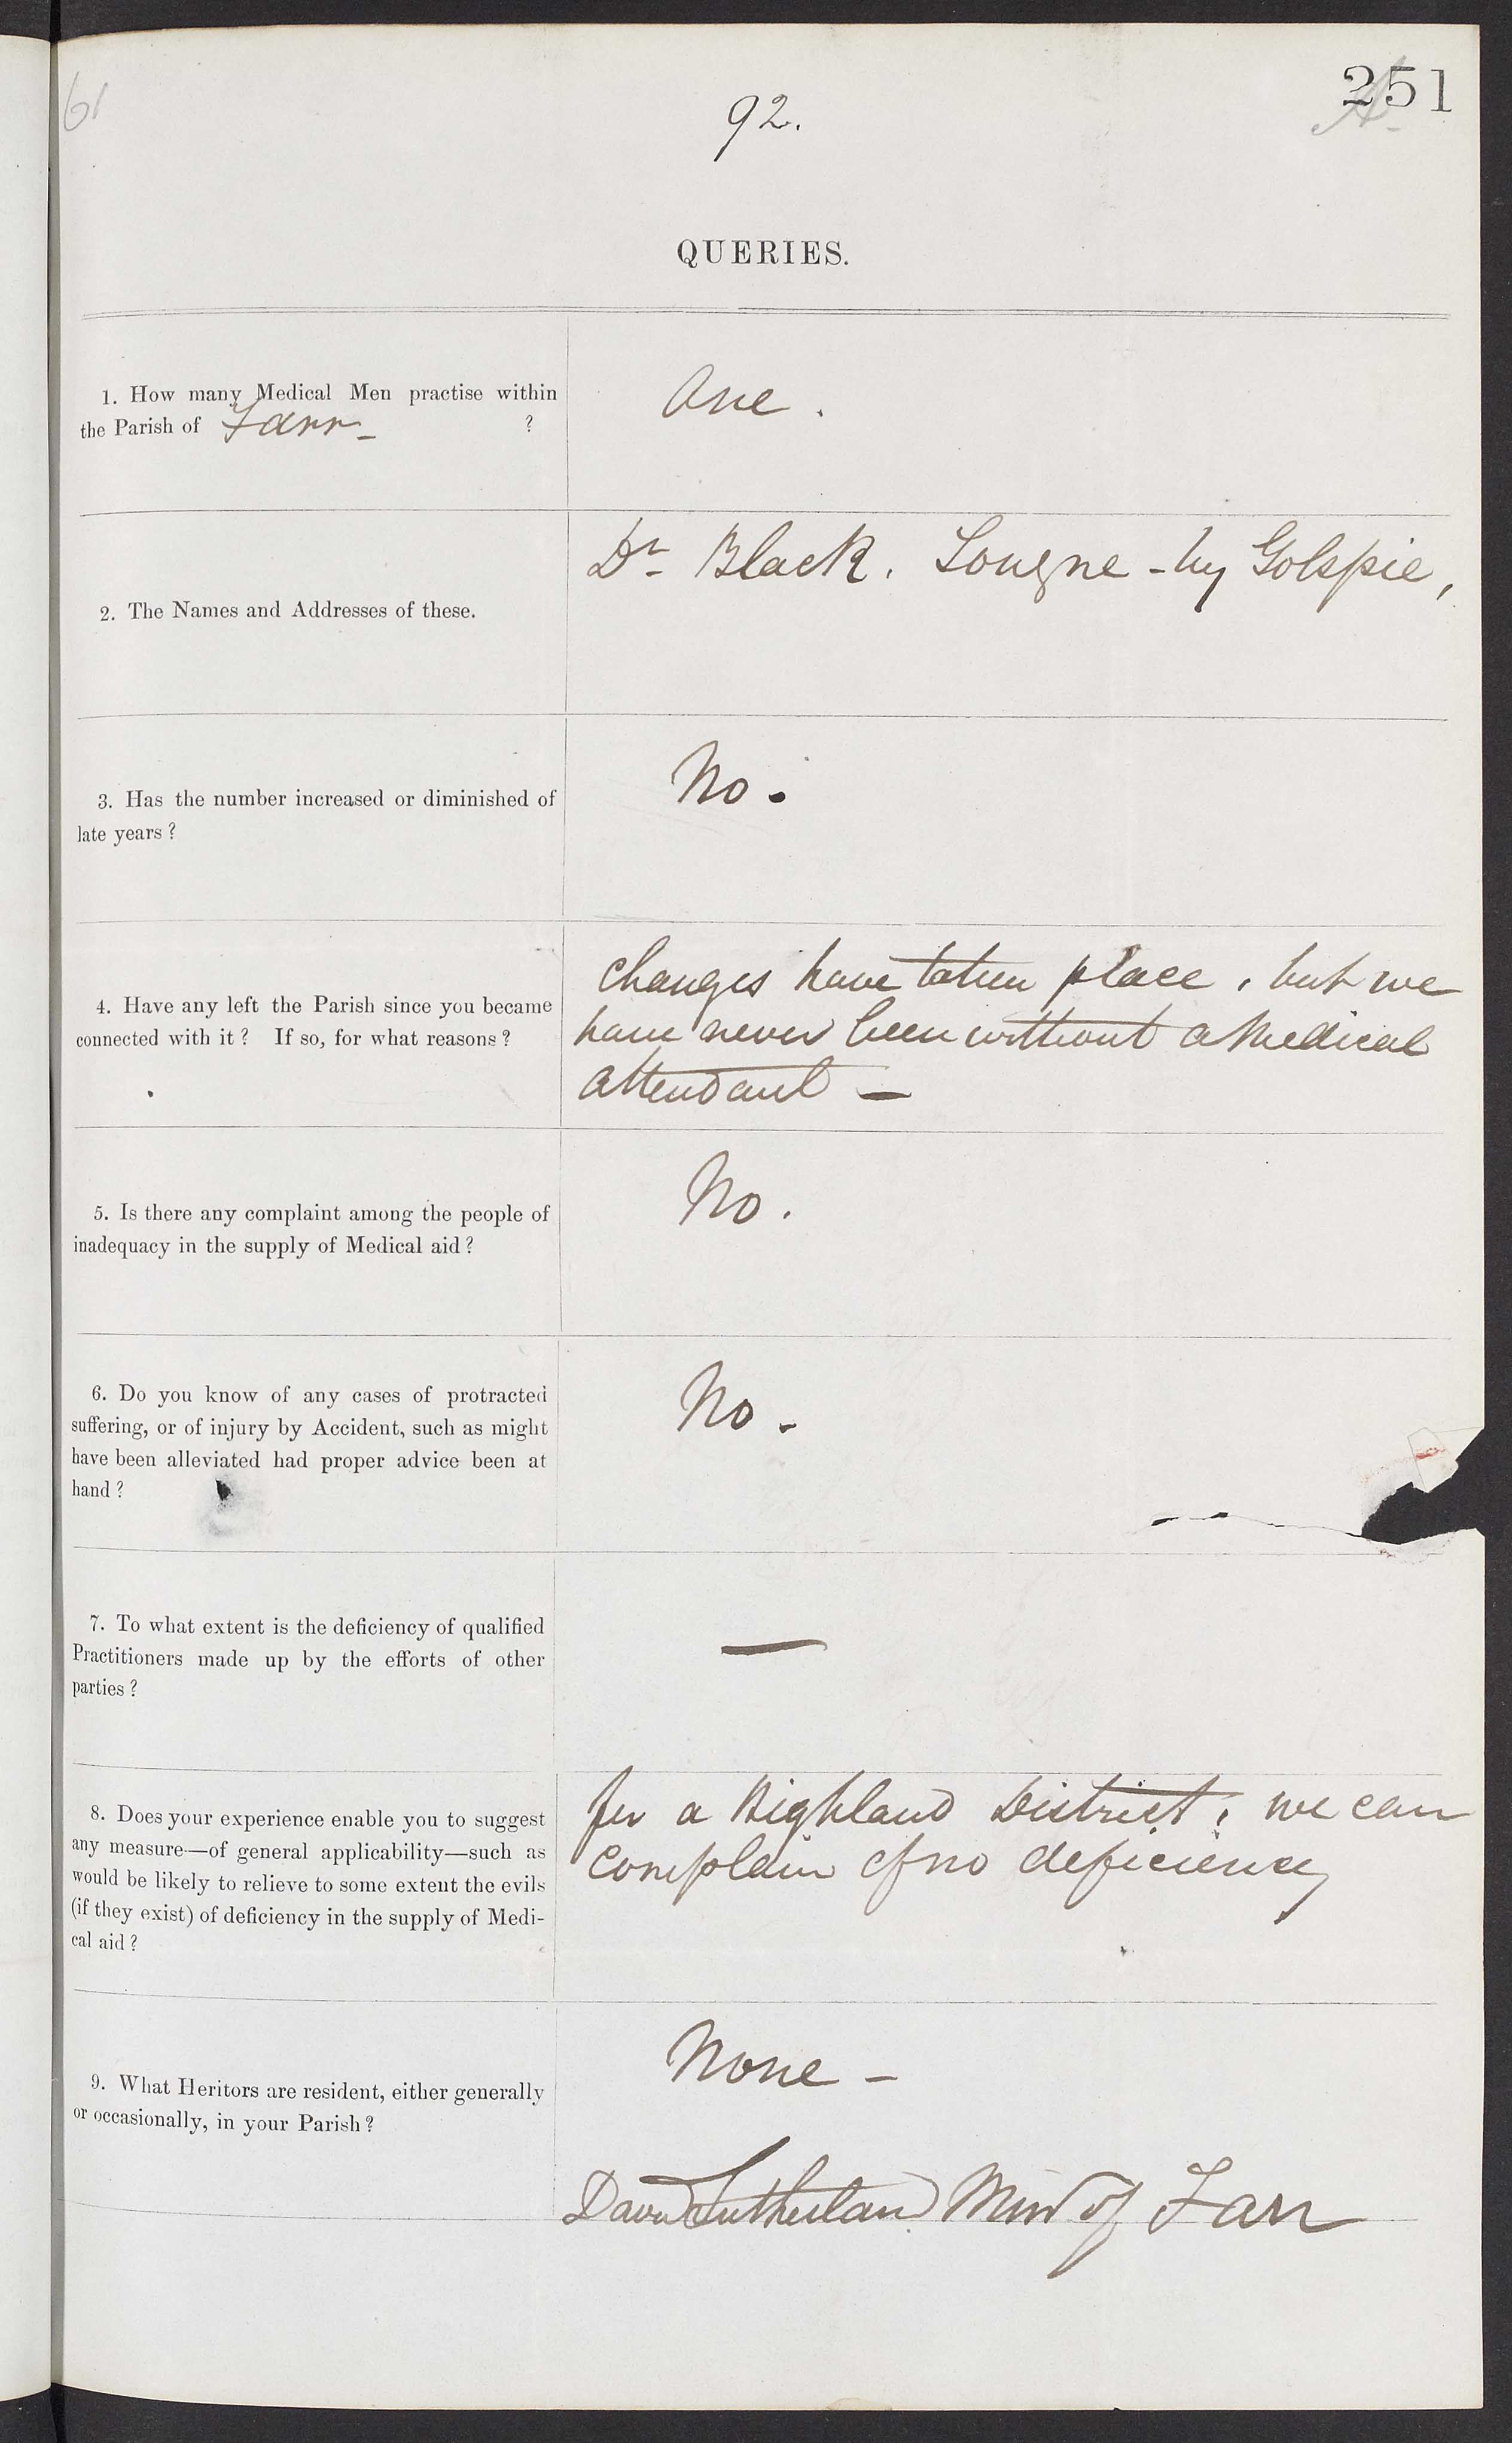 61
251
92.
QUERIES.
1. How many Medical Men practise within
the Parish of Farr ?
One.
2. The Names and Addresses of these.
Dr Black. Tongue - by Golspie,
3. Has the number increased or diminished of
late years ?
No.
4. Have any left the Parish since you became
connected with it ? If so, for what reasons ?
Changes have taken place, but we
have never been without a Medical
Attendant —
5. Is there any complaint among the people of
inadequacy in the supply of Medical aid ?
No.
6. Do you know of any cases of protracted
suffering, or of injury by Accident, such as might
have been alleviated had proper advice been at
hand ?
No -
7. To what extent is the deficiency of qualified
Practitioners made up by the efforts of other
parties ?
—
8. Does your experience enable you to suggest
any measure—of general applicability—such as
would be likely to relieve to some extent the evils
(if they exist) of deficiency in the supply of Medi-
cal aid ?
for a Highland District, we can
Complain of no deficiency
9. What Heritors are resident, either generally
or occasionally, in your Parish ?
None -
David Sutherland Minr of Farr